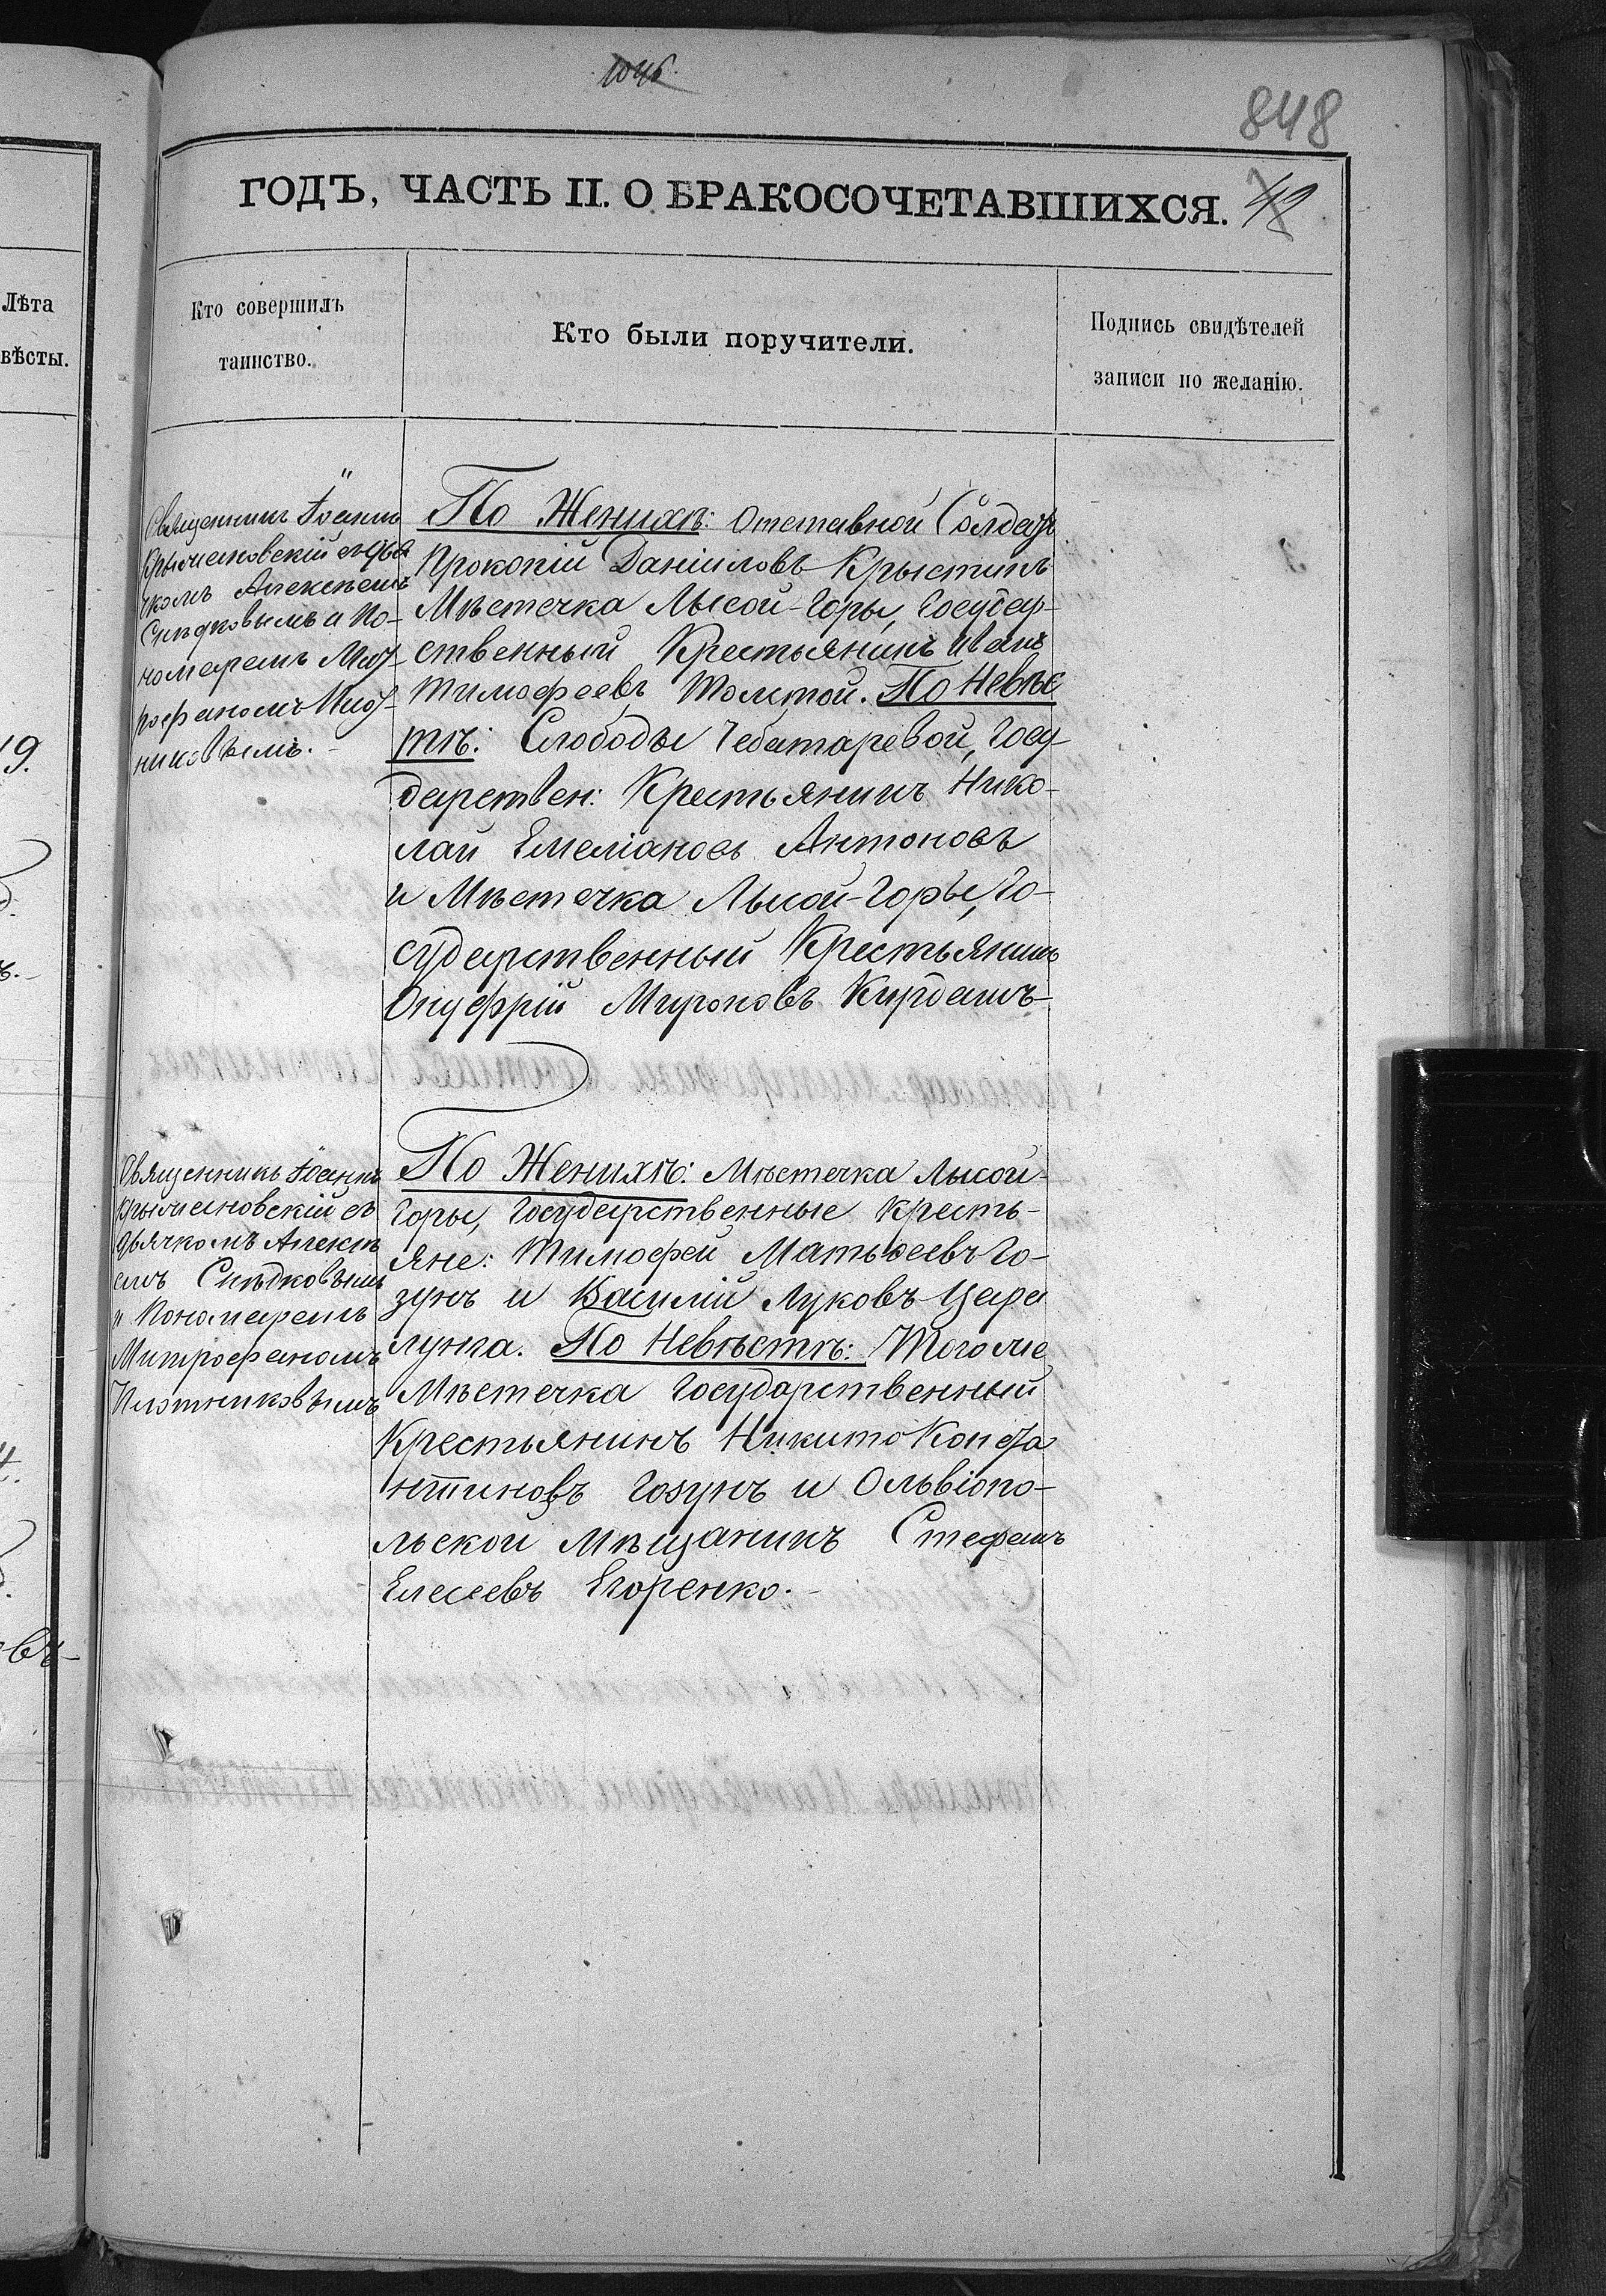 1046
848
ГОДЪ, ЧАСТЬ II. О БРАКОСОЧЕТАВШИХСЯ.
Лѣта
вѣсты.
Кто совершилъ
таинство.
Кто были поручители.
Подпись свидѣтелей
записи по желанію.
19.
Священникъ Іоаннъ
съ дья
чкомъ Алексѣемъ
Снѣдковымъ и По-
номаремъ Мит-
рофаномъ Плот-
никовымъ.
По Женихѣ: Отставной Солдатъ
Прокопій Даніиловъ Крыстинъ
Мѣстечка Лысой-Горы, Государ-
ственный Крестьянинъ Иванъ
Тимофеевъ Толстой. По Невѣс
тѣ: Слободы Чебатаревой, Госу-
дарствен: Крестьянинъ Нико-
лай Емеліановъ Антоновъ
и Мѣстечка Лысой-Горы, Го-
сударственный Крестьянинъ
Онуфрій Мироновъ Кирдашъ-
Священникъ Іоаннъ
съ
дьячкомъ Алексѣ
емъ Снѣдковымъ
и Пономаремъ
Митрофаномъ
Плотниковымъ
По Женихѣ: Мѣстечка Лысой-
Горы, Государственные Кресть-
яне: Тимофей Матвѣевъ Го-
зунъ и Василій Луковъ Цара
лунга. По Невѣстѣ: Тогоже
Мѣстечка Государственный
Крестьянинъ Никито Конста
нтиновъ Гозунъ и Ольвіопо-
льской Мѣщанинъ Стефанъ
Елесеевъ Егоренко.-
въ